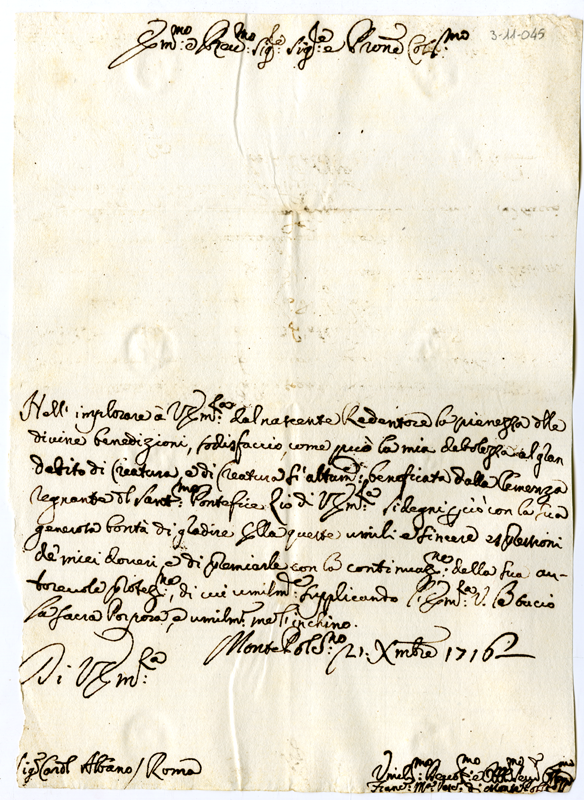 Em.mo e Rev.mo Sig.re Sig.re e Pron.e Col.mo
3-11-045
Nell' implorare à V. Em.za dal nascente Redentore la pienezza delle
divine benedizioni, sodisfaccio, come può la mia debolezza al gran
debito di Creatura, e di Creatura sì altam.te beneficata dalla Clemenza
regnante del Sant.mo Pontefice Zio di V. Em.za. Si degni perciò con la sua
generosa bontà di gradire queste umili e sincere espressioni
de' miei doveri, e di premiarle con la continuaz.ne della sua au-
torevole protez.ne, di cui umilm.te supplicando l'Em.za V. le bacio
la sacra Porpora, e umilm.te me l'inchino.
Monte Pols.no 21: Xmbre 1716
Di V. Em.za
Sig.r Card. Albano / Roma
Umil.mo Devot.mo e Obb.mo Serv.
Franc.o M.a Vesc. di Monte Pols.no